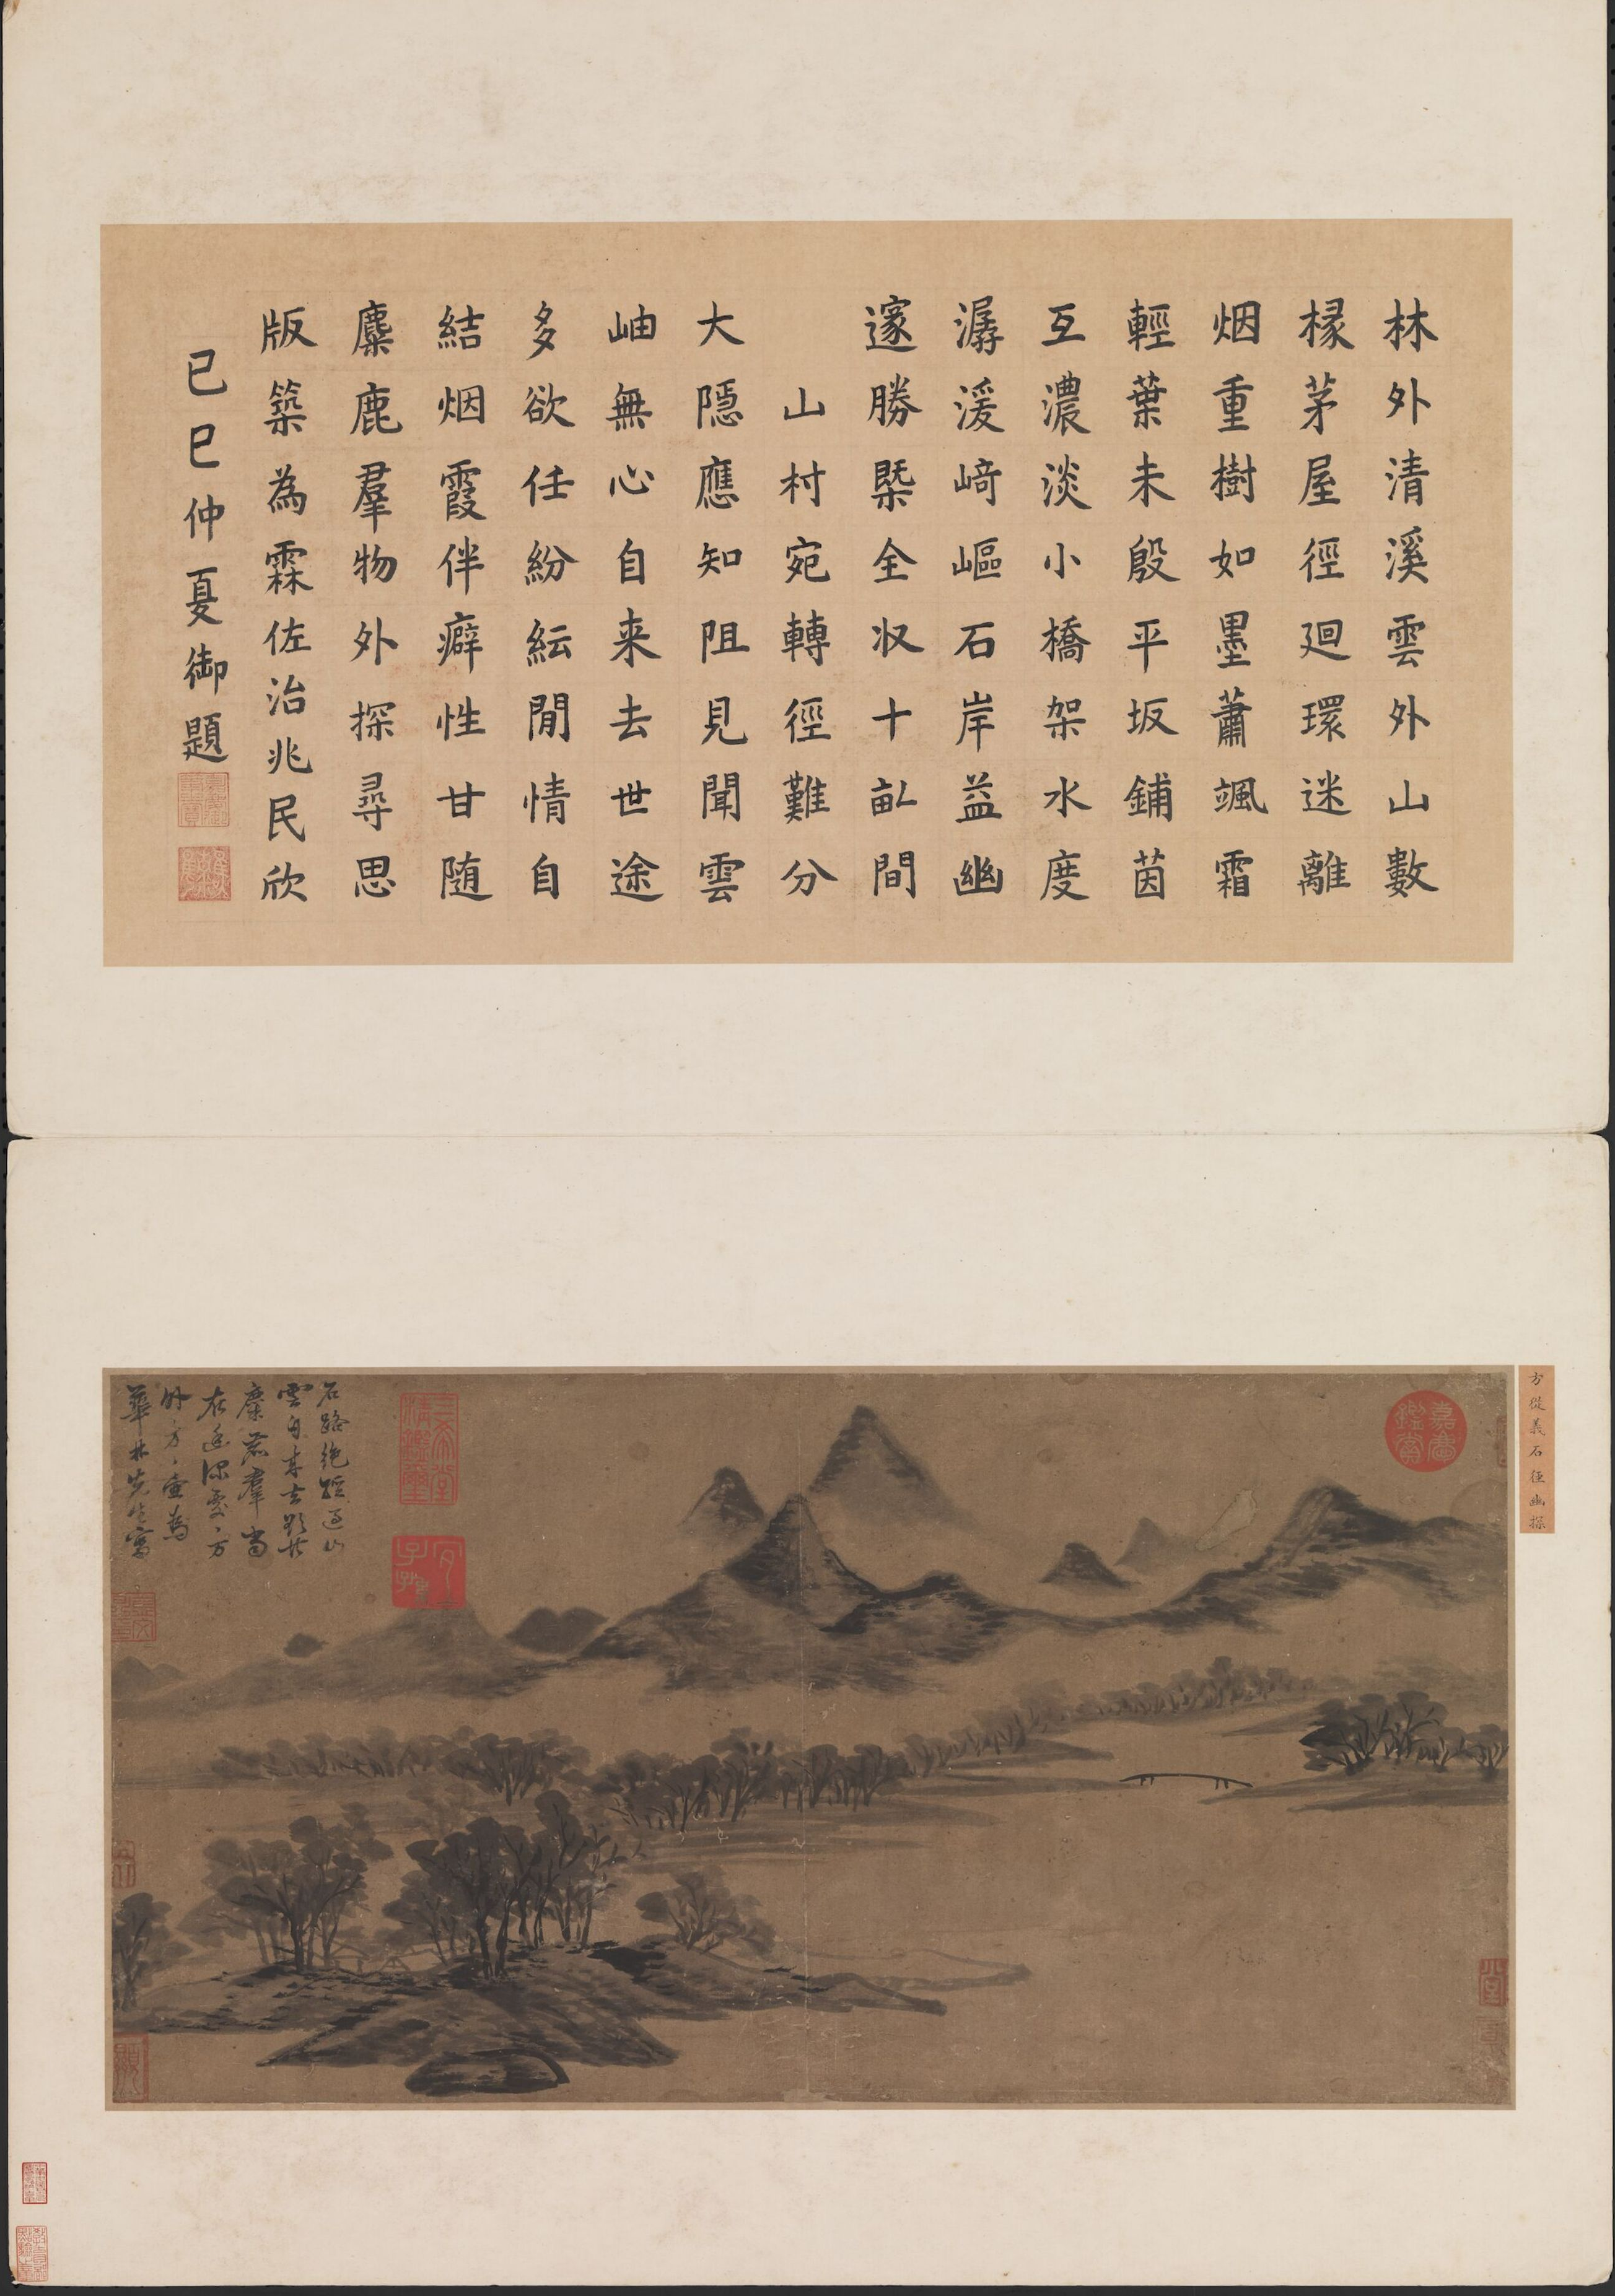 林外清溪雲外山數
椽茅屋徑迴環迷離
烟重樹如墨蕭颯霜
輕葉未殷平坂鋪茵
互濃淡小橋架水度
潺湲﨑嶇石岸益幽
邃勝槩全収十畝間
山村宛轉徑難分
大隱應知阻見聞雲
岫無心自来去世途
多欲任紛紜閒情自
結烟霞伴癖性甘随
麋鹿羣物外探尋思
版築為霖佐治兆民欣
己巳仲夏御題
方從義石徑幽探
石路絶蹤過山
雲自来去影共
麋鹿羣常
在幽深處方
外方壺為
華林先生寫
嘉慶鑑賞
三希堂精鑑璽
宜子孫